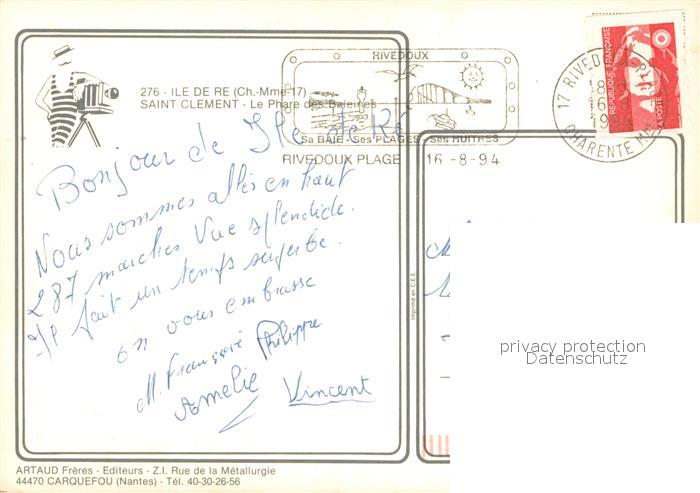 276 - ILE DE RE (Ch.-Mme-17)
SAINT CLEMENT - Le Phare des Baleines
RIVEDOUX
Sa BAIE - Ses PLAGES - Ses HUITRES
RIVEDOUX PLAGE 16-8-94
17 RIVEDOUX
18
16-8
1994
CHARENTE Mme
REPUBLIQUE FRANÇAISE
LA POSTE
Bonjour de Ile de Ré
Nous sommes allés en haut
287 marches Vue splendide.
Il fait un temps superbe.
on vous embrasse
M. Françoise Philippe
Amelie Vincent
Imprimé en C.E.E.
privacy protection
Datenschutz
ARTAUD Frères - Editeurs - Z.I. Rue de la Métallurgie
44470 CARQUEFOU (Nantes) - Tél. 40-30-26-56